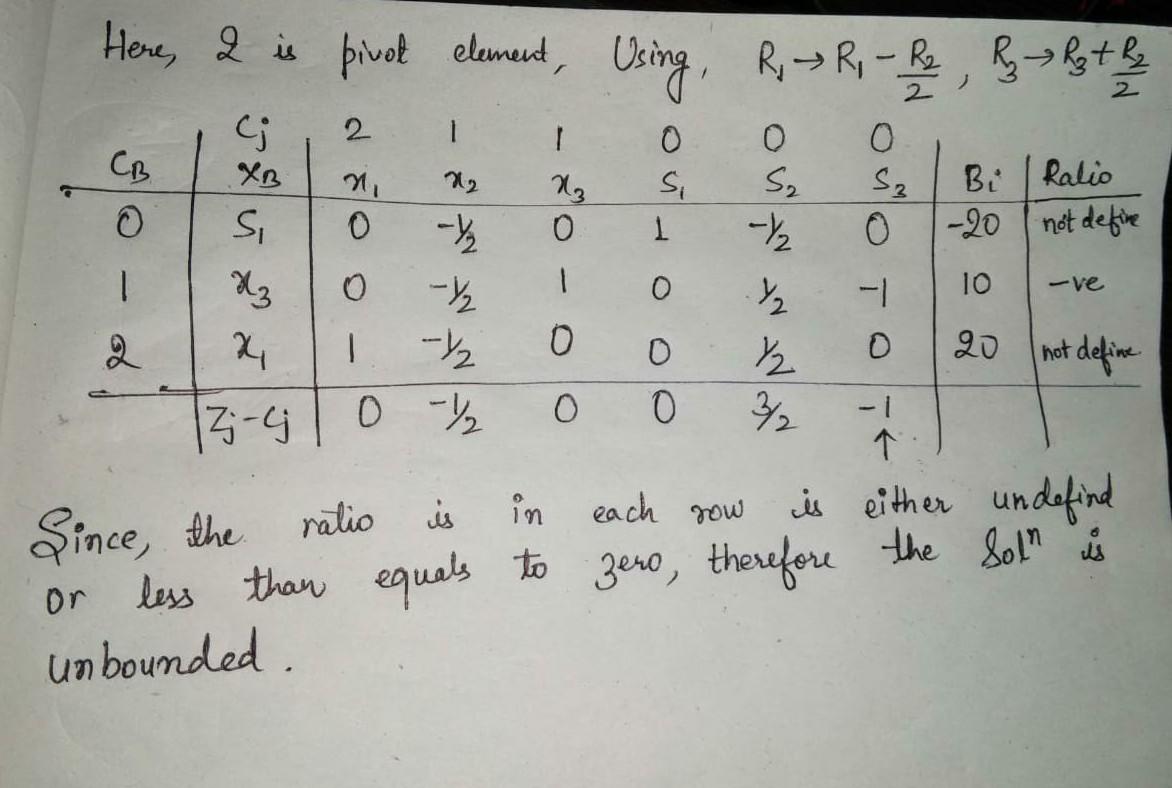 Here, 2 is pivot element, Using, R₁→R₁-R₂/2, R₃→R₃+R₂/2
Cj 2 1 1 0 0 0
CB XB x₁ x₂ x₃ S₁ S₂ S₃ Bi Ratio
0 S₁ 0 -1/2 0 1 -1/2 0 -20 not define
1 x₃ 0 -1/2 1 0 1/2 -1 10 -ve
2 x₁ 1 -1/2 0 0 1/2 0 20 not define
Zj-Cj 0 -1/2 0 0 3/2 -1
↑
Since, the ratio is in each row is either undefind
or less than equals to zero, therefore the Solⁿ is
unbounded.